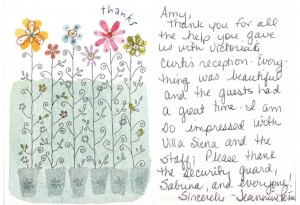 thanks
Amy,
Thank you for all
the help you gave
us with Victoria &
Curtis reception. Every-
thing was beautiful
and the guests had
a great time. I am
so impressed with
Villa Siena and the
staff. Please thank
the security guard,
Sabrina, and everyone!
Sincerely - Jeannine